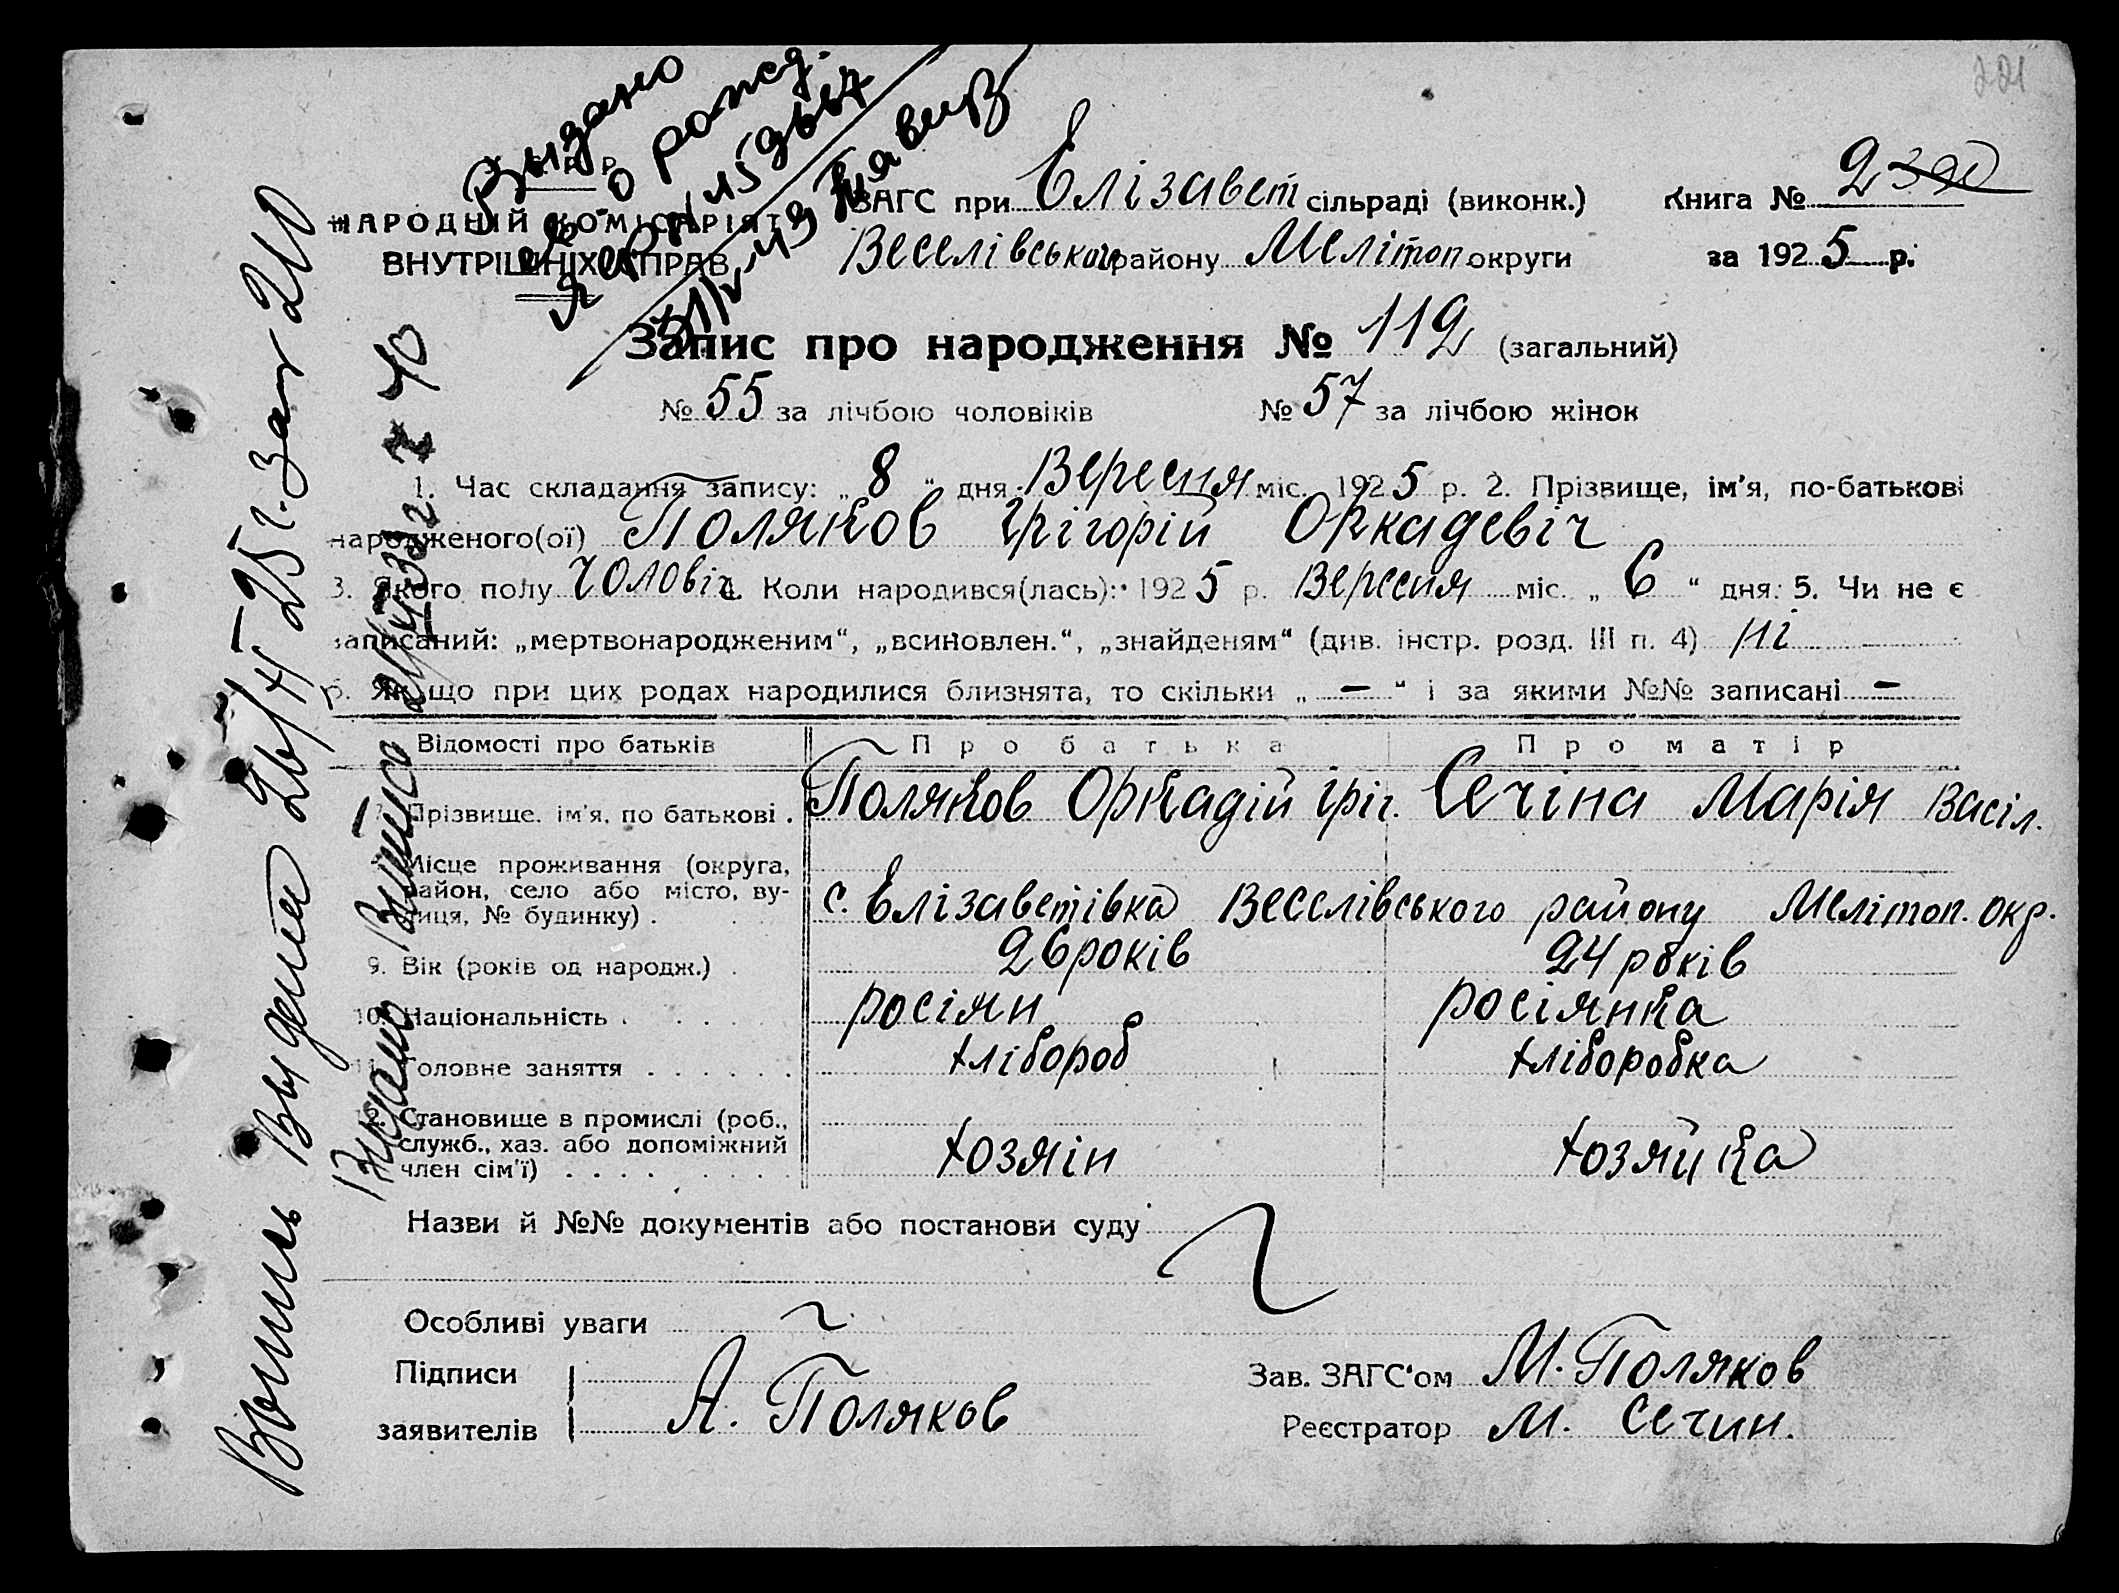 221
Выдано
св. о рожд.
ЗАГС при Елізавет сільраді (виконк.) Книга № 2 390
НАРОДНІЙ КОМІСАРІЯТ
Веселівського району Мелітоп. округи за 1925 р.
ВНУТРІШНІХ СПРАВ
Запис про народження № 112 (загальний)
№ 55 за лічбою чоловіків № 57 за лічбою жінок
1. Час складання запису: „ 8 “ дня Вересня міс. 1925 р. 2. Прізвище, ім'я, по-батькові
народженого(ої) Поляков Грігорій Оркадевіч
3. Якого полу чоловіч. 4. Коли народився(лась): 1925 р. Вересня міс. „ 6 “ дня. 5. Чи не є
записаний: „мертвонародженим“, „всиновлен.“, „знайденям“ (див. інстр. розд. III п. 4) ні
6. Якщо при цих родах народилися близнята, то скільки „ — “ і за якими №№ записані —
Відомості про батьків Про батька Про матір
7. Прізвище, ім'я, по батькові . Поляков Оркадій Гріг. Сечіна Марія Васіл.
8. Місце проживання (округа,
район, село або місто, ву-
лиця, № будинку) . с. Елізаветівка Веселівського району Меліtoп. окр.
9. Вік (років од народж.) . 26 років 24 років
10. Національність . росіян росіянка
11. Головне заняття . . . . . . хлібороб хліборобка
12. Становище в промислі (роб.,
служб., хаз. або допоміжний
член сім'ї) . . . . . . . . хозяін хозяйка
Назви й №№ документів або постанови суду
Особливі уваги
Підписи
заявителів А. Поляков
Зав. ЗАГС'ом М. Поляков
Реєстратор М. Сечин.